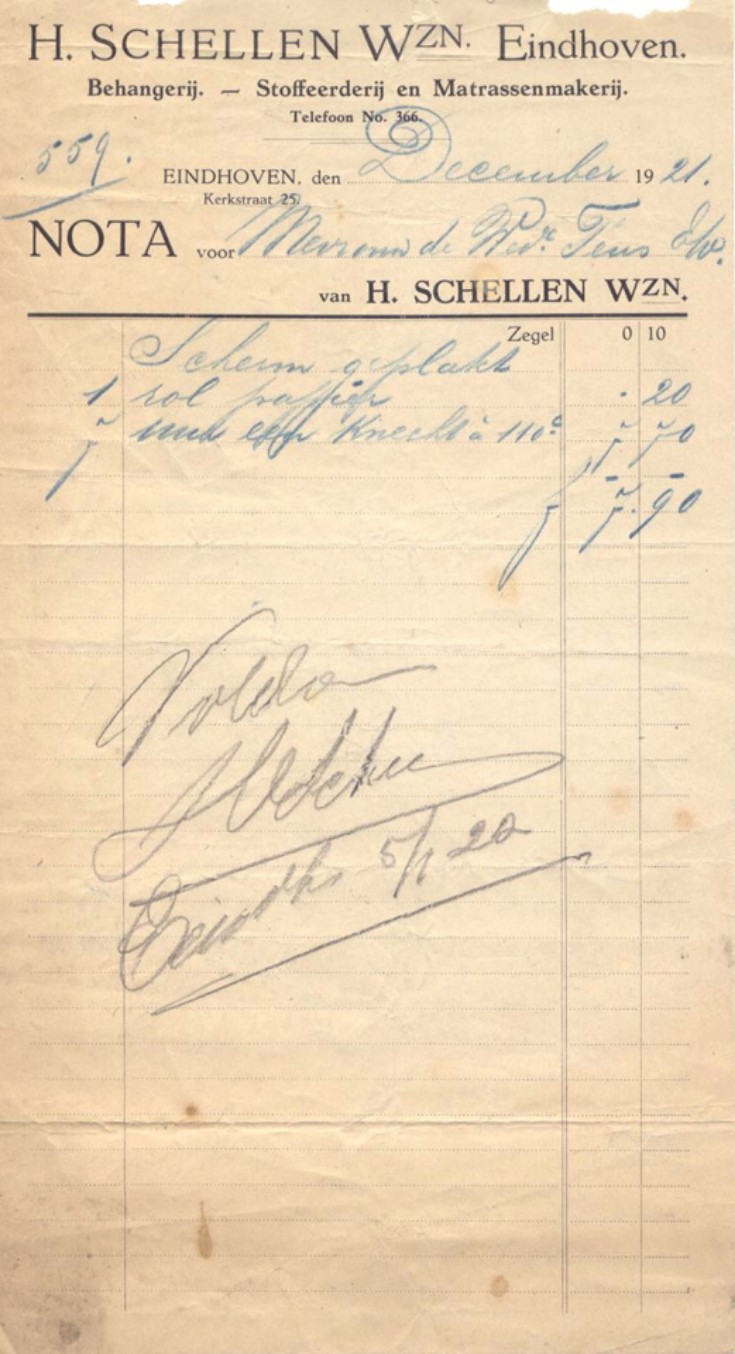 H. SCHELLEN WZN. Eindhoven.
Behangerij. — Stoffeerderij en Matrassenmakerij.
Telefoon No. 366.
559.
EINDHOVEN, den December 1921.
Kerkstraat 25.
NOTA voor Mevrouw de Wed.e Teus E/v.
van H. SCHELLEN WZN.
Zegel 0 10
Scherm geplakt
1 rol pappier . 20
7 uur een Knecht à 110c 7 70
f 7.90
Voldaan
Eindh 5/1 22